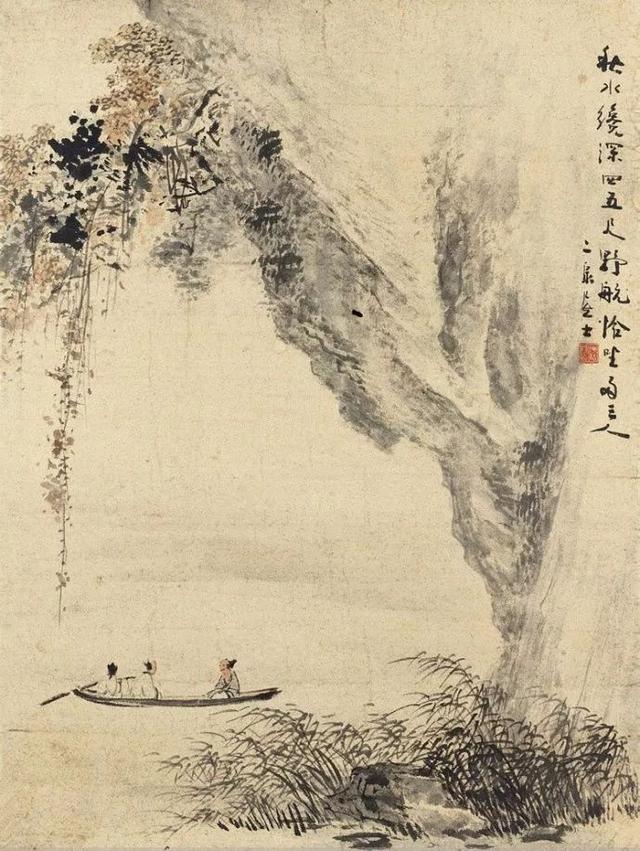 秋水纔深四五尺野航恰坐两三人
二泉居士